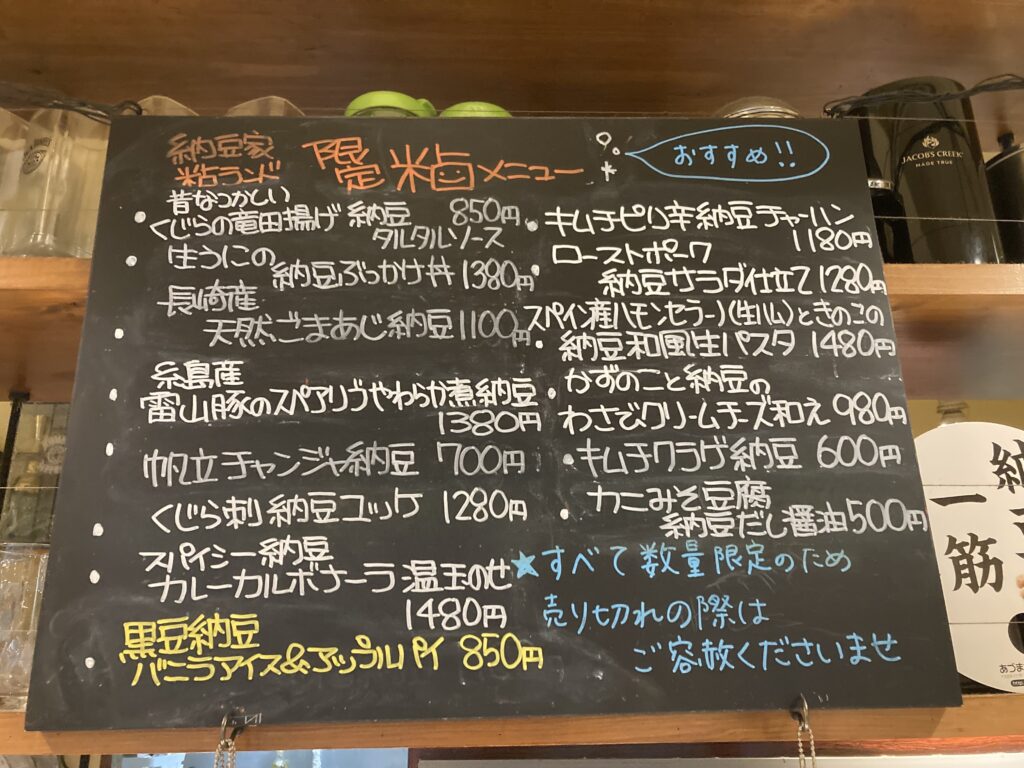 納豆家
粘ランド
限定粘メニュー
おすすめ!!
昔なつかしい
くじらの竜田揚げ納豆 850円
タルタルソース
生うにの
納豆ぶっかけ丼 1380円
長崎産
天然ごまあじ納豆 1100円
糸島産
雷山豚のスペアリブやわらか煮納豆
1380円
帆立チャンジャ納豆 700円
くじら刺納豆ユッケ 1280円
スパイシー納豆
カレーカルボナーラ温玉のせ
1480円
黒豆納豆
バニラアイス&アップルパイ 850円
キムチピリ辛納豆チャーハン
1180円
ローストポーク
納豆サラダ仕立て 1280円
スペイン産ハモンセラーノ(生ハム)ときのこの
納豆和風生パスタ 1480円
かずのこと納豆の
わさびクリームチーズ和え 980円
キムチクラゲ納豆 600円
カニみそ豆腐
納豆だし醤油 500円
★すべて数量限定のため
売り切れの際は
ご容赦くださいませ
JACOB'S CREEK
MADE TRUE
一筋
あづま